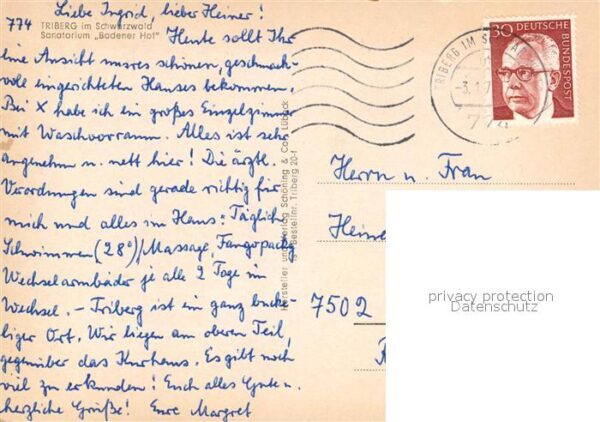 Liebe Ingrid, lieber Heiner!
774
TRIBERG im Schwarzwald
Sanatorium „Badener Hof"
Heute sollt Ihr
eine Ansicht unsres schönen, geschmack-
voll eingerichteten Hauses bekommen.
Bei X habe ich ein großes Einzelzimmer
mit Waschvorraum. Alles ist sehr
angenehm u. nett hier! Die ärztl.
Verordnungen sind gerade richtig für
mich und alles im Haus: Täglich
Schwimmen (28°), Massage, Fangopackg
Wechselarmbäder je alle 2 Tage im
Wechsel. - Triberg ist ein ganz bucke-
liger Ort. Wir liegen am oberen Teil,
gegenüber das Kurhaus. Es gibt noch
viel zu erkunden! Euch alles Gute u.
herzliche Grüße! Eure Margret
Hersteller und Verlag Schöning & Co., Lübeck
Bestellnr. Triberg 20-1
TRIBERG IM
774
30 DEUTSCHE
BUNDESPOST
Herrn u. Frau
Heine
7502
privacy protection
Datenschutz